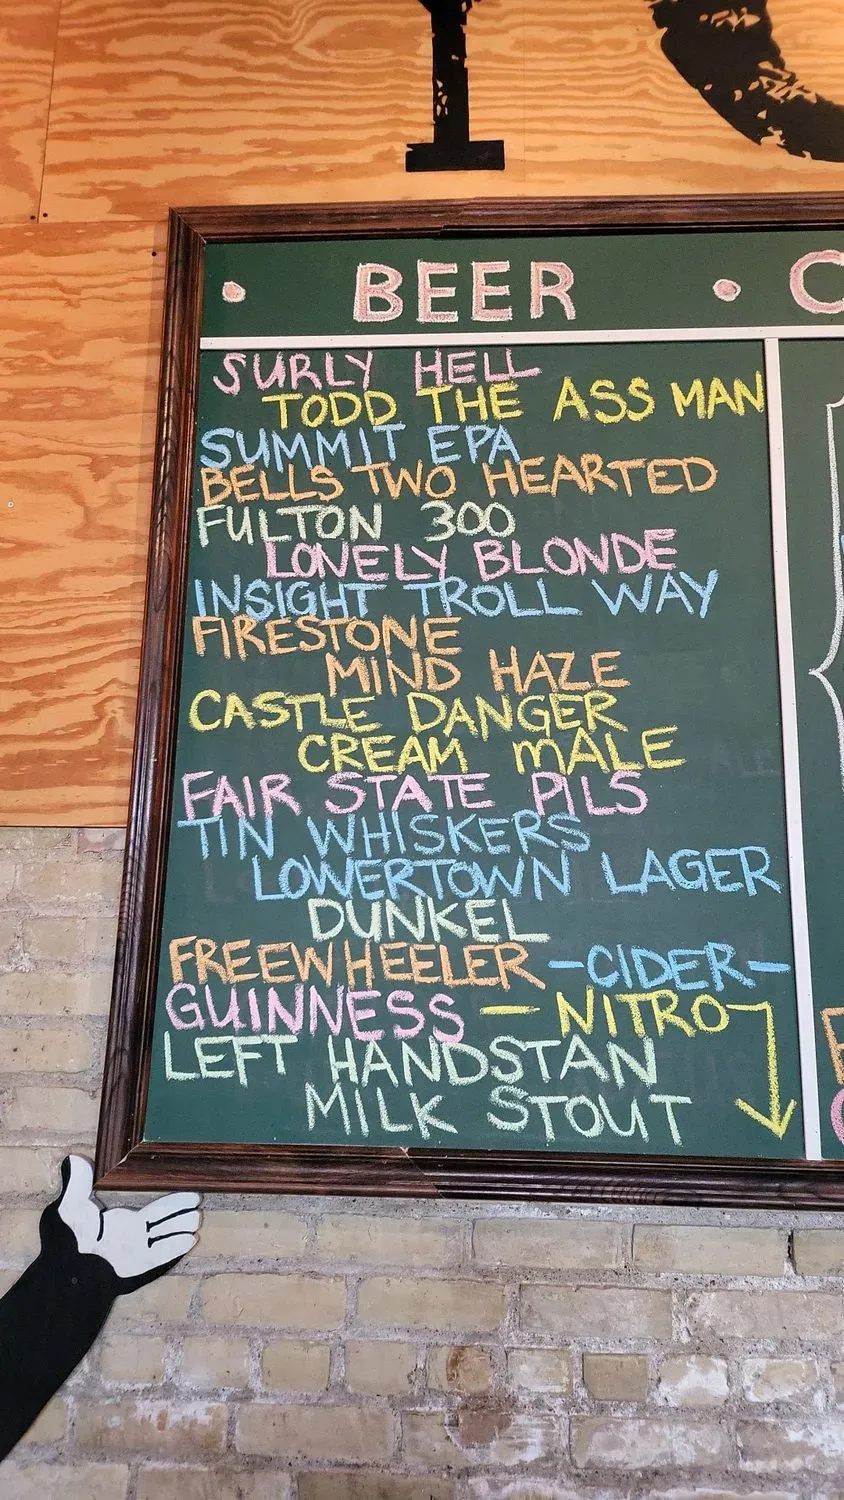 • BEER •
SURLY HELL
TODD THE ASS MAN
SUMMIT EPA
BELLS TWO HEARTED
FULTON 300
LONELY BLONDE
INSIGHT TROLL WAY
FIRESTONE
MIND HAZE
CASTLE DANGER
CREAM mALE
FAIR STATE PILS
TIN WHISKERS
LOWERTOWN LAGER
DUNKEL
FREEWHEELER -CIDER-
GUINNESS - NITRO
LEFT HANDSTAN
MILK STOUT